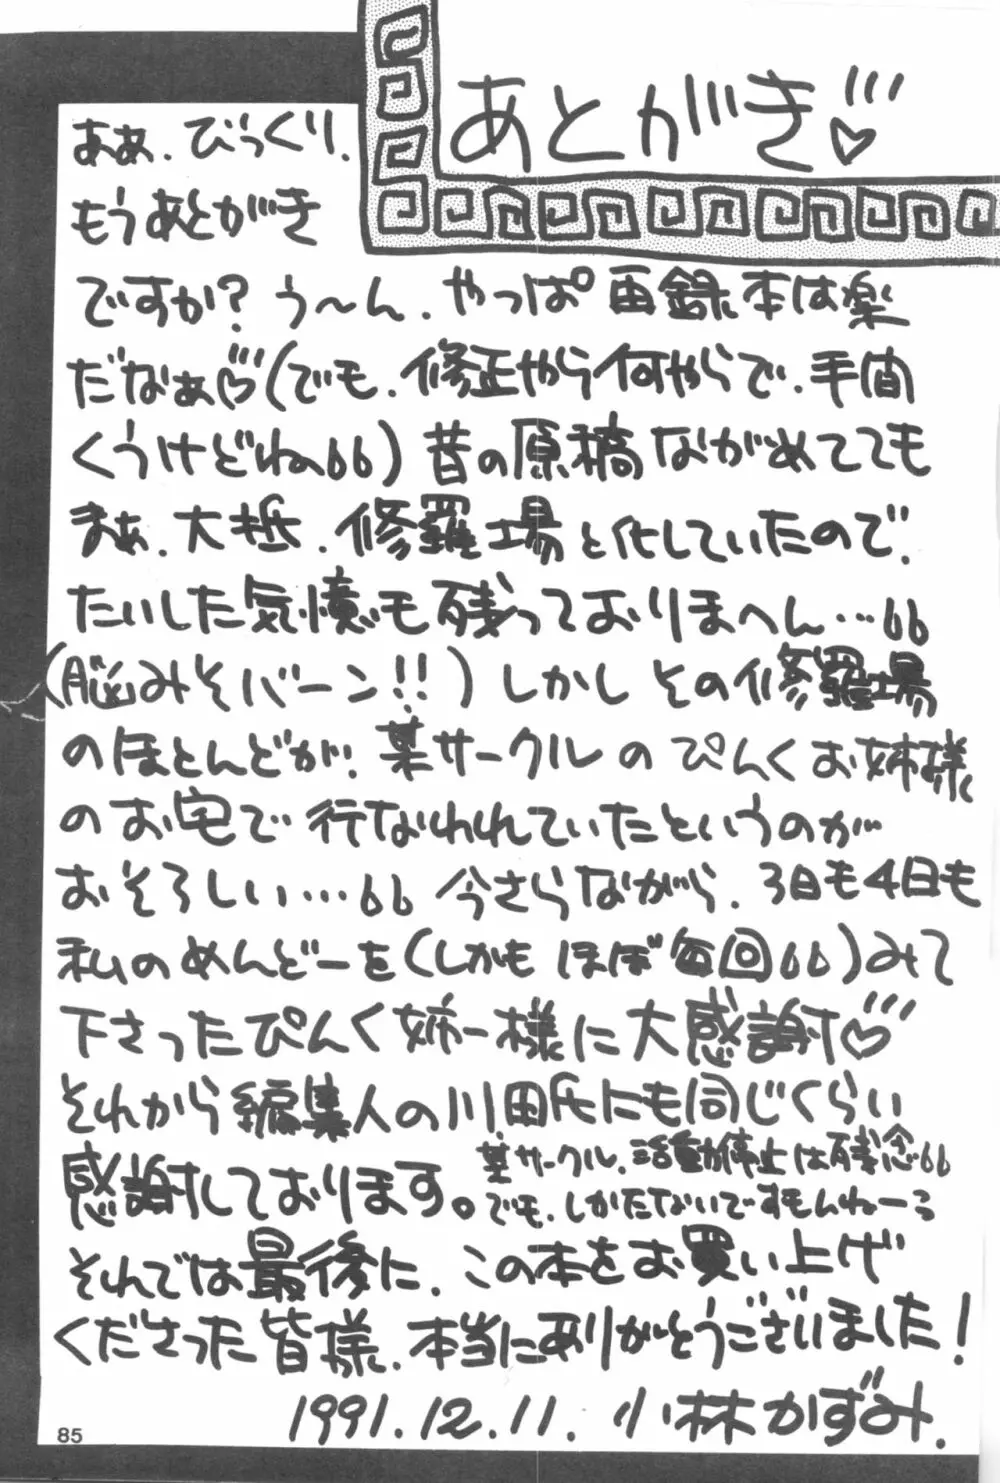 あとがき♡
ああ、びっくり、
もうあとがき
ですか？う〜ん、やっぱ再録本は楽
だなぁ♡(でも、修正やら何やらで、手間
くうけどね)昔の原稿ながめてても
まぁ、大抵、修羅場と化していたので、
たいした気憶も残っておりまへん…
(脳みそバーン!!)しかしその修羅場
のほとんどが、某サークルのぴんくお姉様
のお宅で行なわれていたというのが
おそろしい…今さらながら、3日も4日も
私のめんどーを(しかもほぼ毎回)みて
下さったぴんく姉一様に大感謝♡
それから編集人の川田氏にも同じくらい
感謝しております。
某サークル、活動停止は残念
でも、しかたないですもんねーう
それでは最後に、この本をお買い上げ
くださった皆様、本当にありがとうございました！
1991.12.11. 小林かずみ.
85